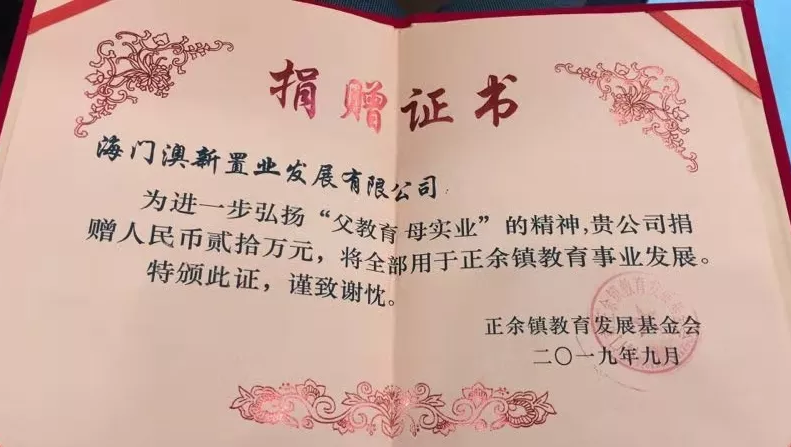 捐赠证书
海门澳新置业发展有限公司
为进一步弘扬“父教育 母实业”的精神,贵公司捐
赠人民币贰拾万元，将全部用于正余镇教育事业发展。
特颁此证，谨致谢忱。
正余镇教育发展基金会
二〇一九年九月